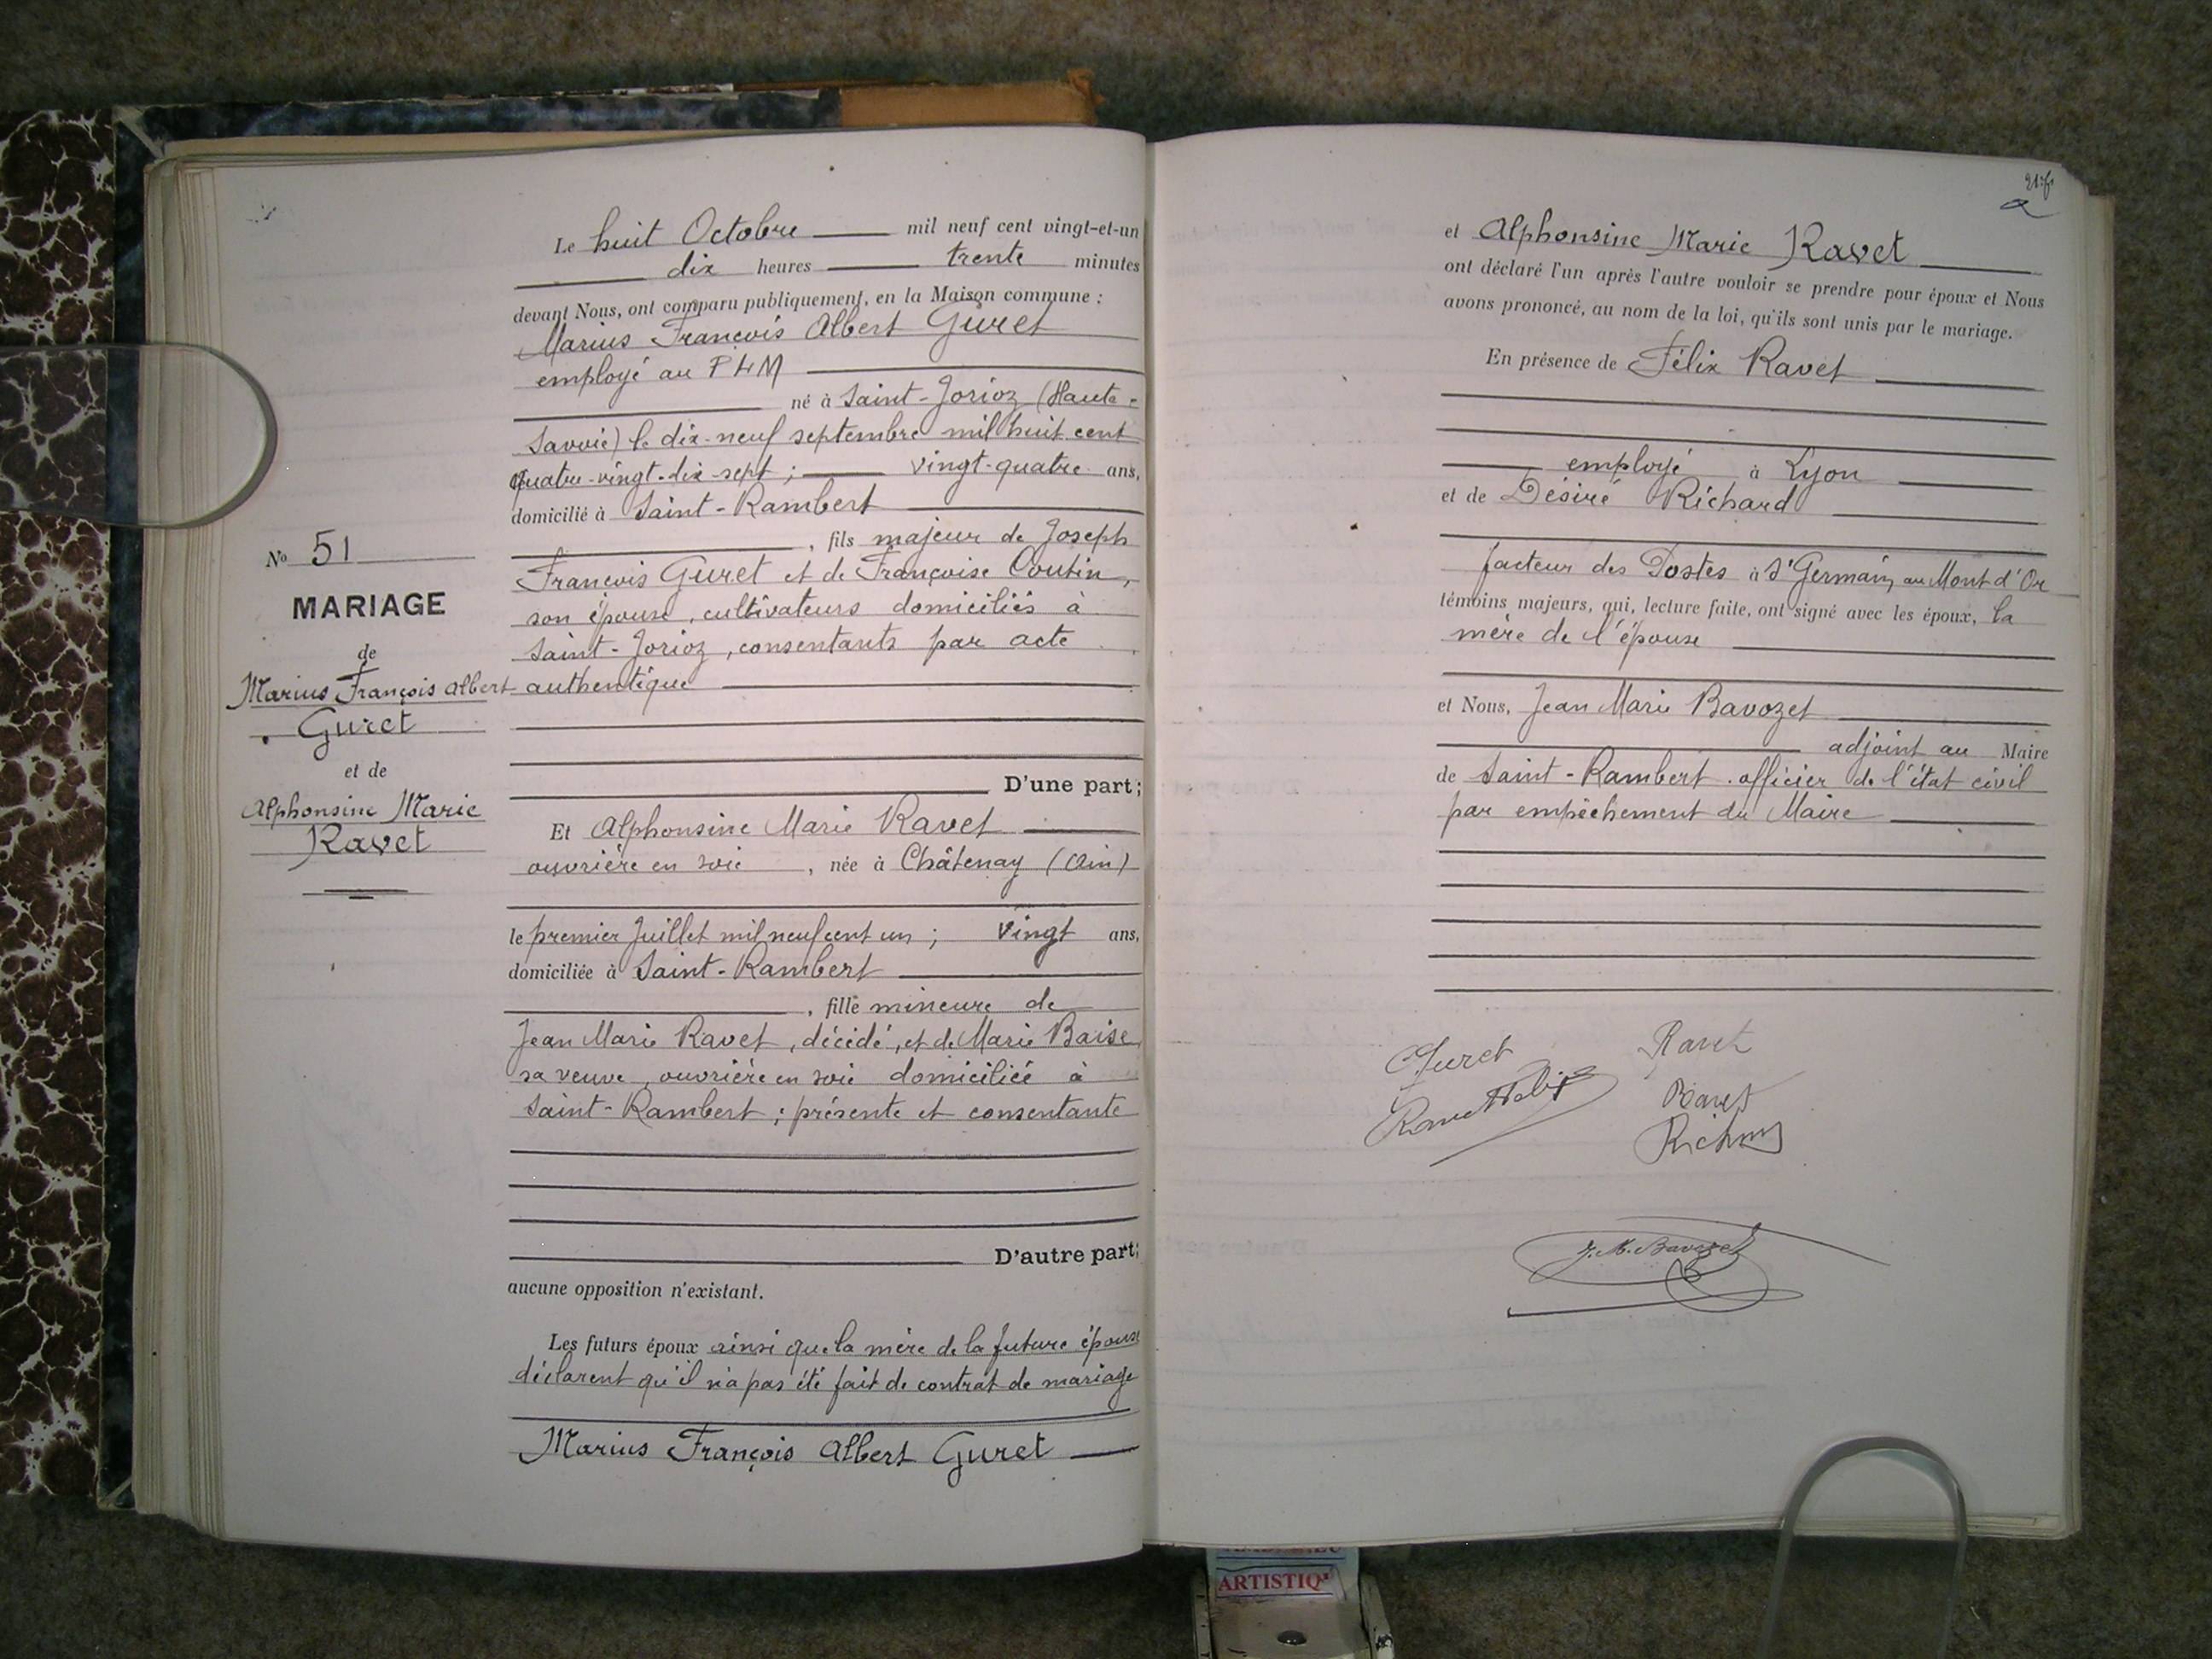 Le huit Octobre mil neuf cent vingt-et-un
dix heures trente minutes
devant Nous, ont comparu publiquement, en la Maison commune :
Marius François Albert Guret
employé au PLM
né à Saint-Jorioz (Haute-
Savoie) le dix-neuf septembre mil huit cent
quatre-vingt-dix-sept ; vingt-quatre ans,
domicilié à Saint-Rambert
, fils majeur de Joseph
François Guret et de Françoise Coutin,
son épouse, cultivateurs domiciliés à
Saint-Jorioz, consentants par acte
authentique
D'une part;
Et Alphonsine Marie Ravet
ouvrière en soie , née à Châtenay (Ain)
le premier Juillet mil neuf cent un ; vingt ans,
domiciliée à Saint-Rambert
, fille mineure de
Jean Marie Ravet, décédé, et de Marie Baise
sa veuve, ouvrière en soie domiciliée à
Saint-Rambert ; présente et consentante
D'autre part;
aucune opposition n'existant.
Les futurs époux ainsi que la mère de la future épouse
déclarent qu'il n'a pas été fait de contrat de mariage
Marius François Albert Guret
No 51
MARIAGE
de
Marius François Albert
Guret
et de
Alphonsine Marie
Ravet
et Alphonsine Marie Ravet
ont déclaré l'un après l'autre vouloir se prendre pour époux et Nous
avons prononcé, au nom de la loi, qu'ils sont unis par le mariage.
En présence de Félix Ravet
employé à Lyon
et de Désiré Richard
facteur des Postes à St Germain au Mont d'Or
témoins majeurs, qui, lecture faite, ont signé avec les époux, la
mère de l'épouse
et Nous, Jean Marie Bavozet
adjoint au Maire
de Saint-Rambert. officier de l'état civil
par empêchement du Maire
Guret Ravet
Ravet Félix Ravet
Richard
J. M. Bavozet
ARTISTIQ